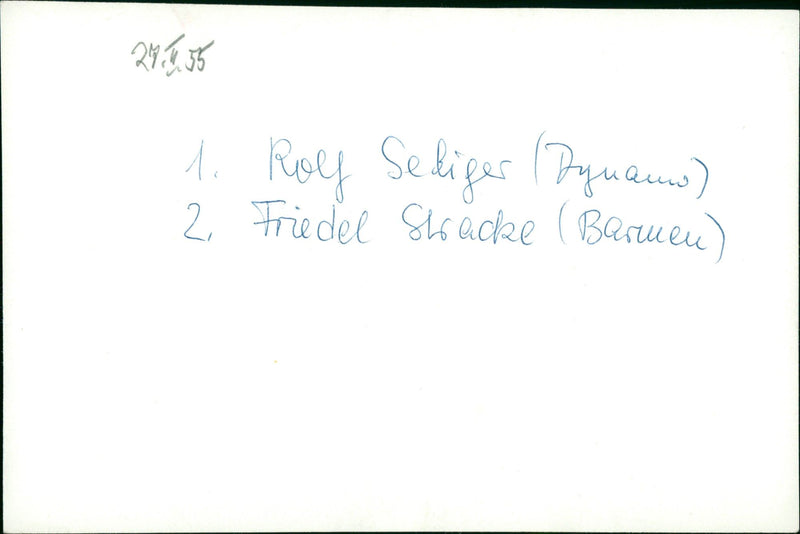 27.II.55
1. Rolf Sediger (Dynamo)
2. Friedel Stracke (Barmen)